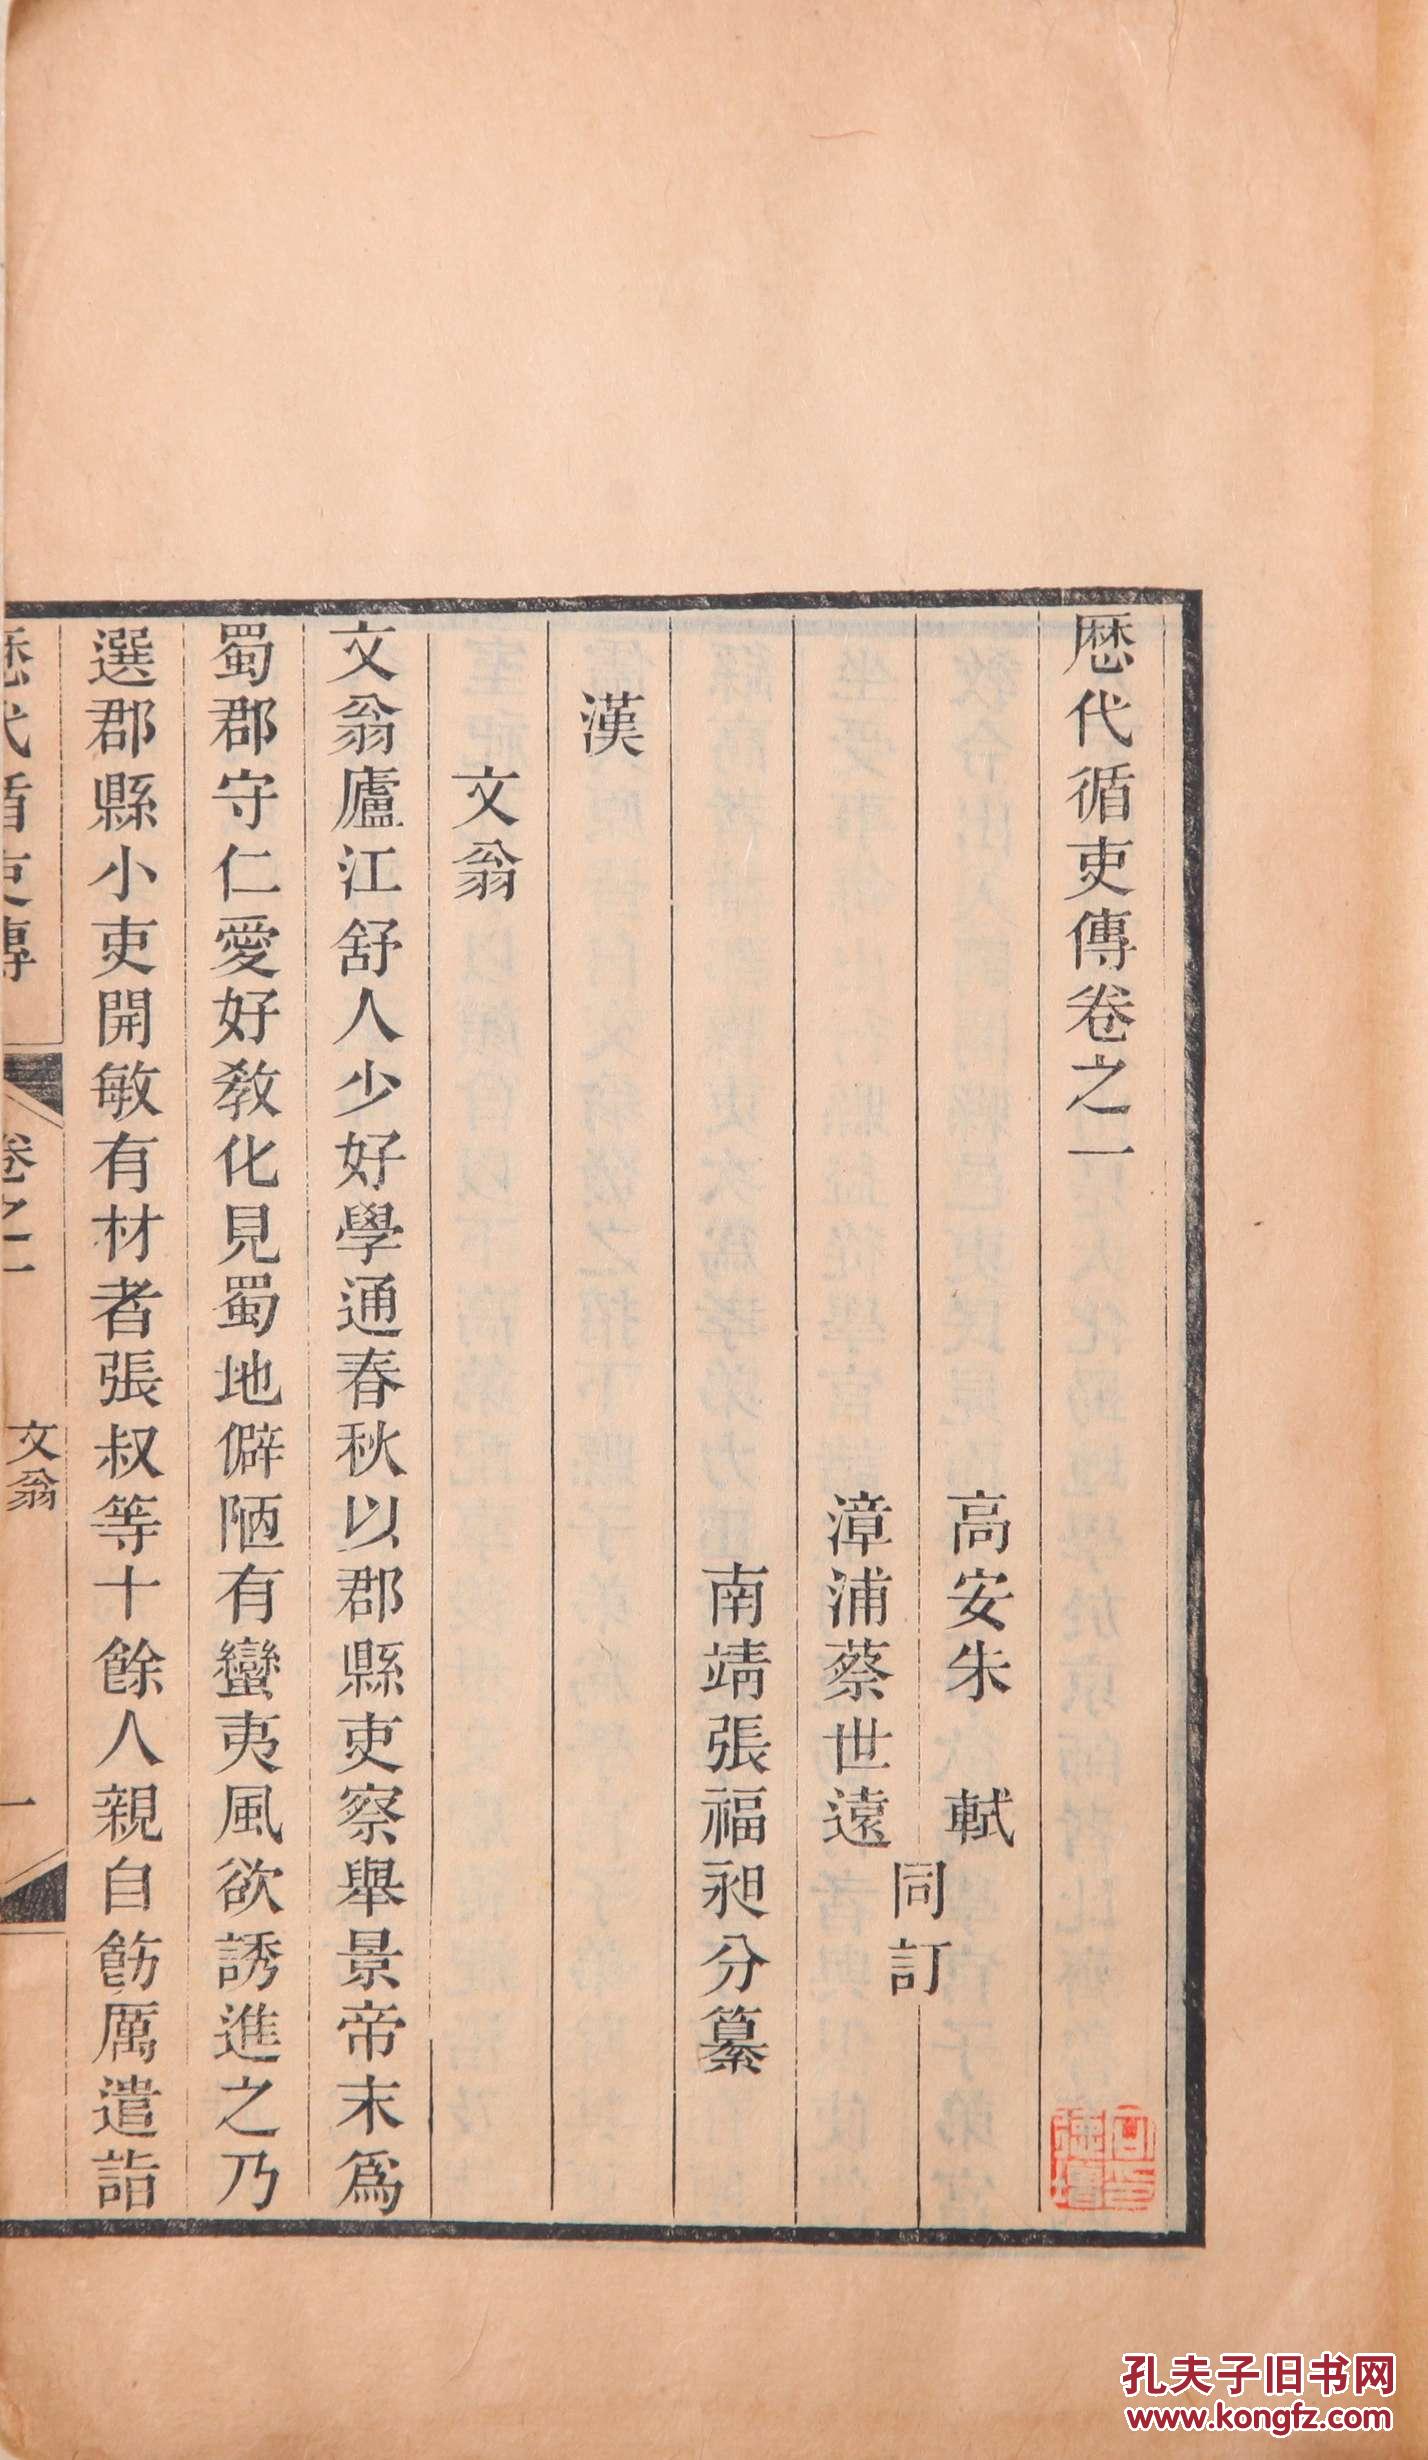 歷代循吏傳卷之一
高安朱　軾
漳浦蔡世遠
同訂
南靖張福昶分纂
漢
文翁
文翁廬江舒人少好學通春秋以郡縣吏察舉景帝末爲
蜀郡守仁愛好敎化見蜀地僻陋有蠻夷風欲誘進之乃
選郡縣小吏開敏有材者張叔等十餘人親自飭厲遣詣
歷代循吏傳　卷之一　文翁　一
孔夫子旧书网
www.kongfz.com